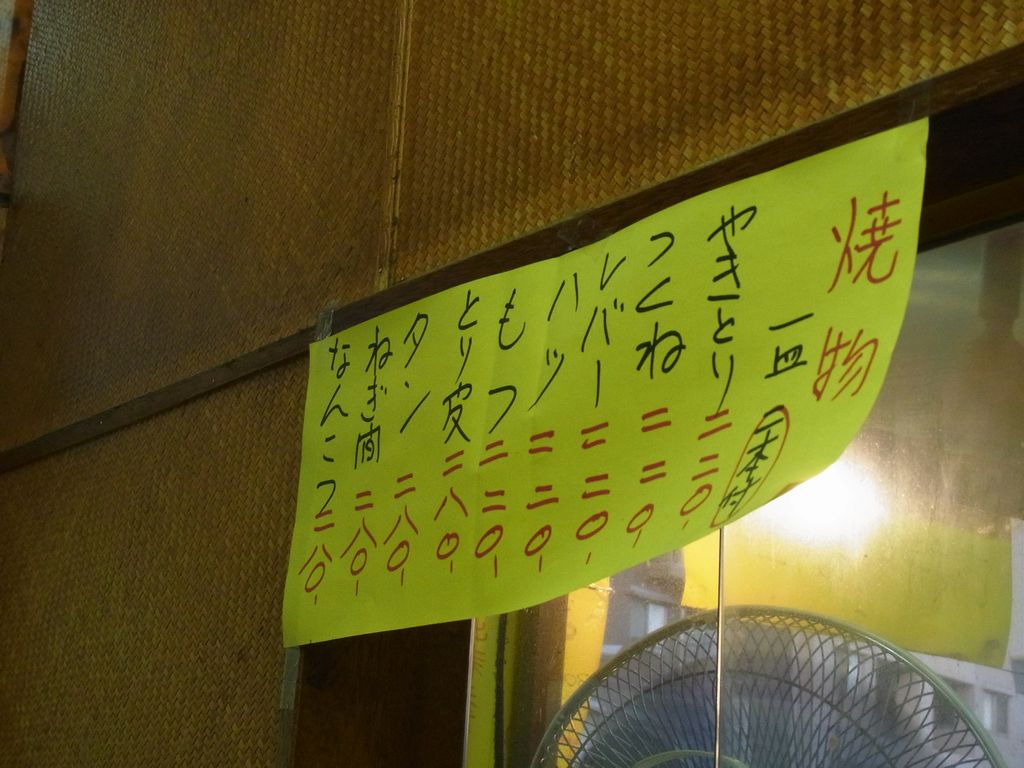 焼物
一皿
やきとり 二二〇-
つくね 二二〇-
レバー 二二〇-
ハツ 二二〇-
もつ 二二〇-
とり皮 二八〇-
タン 二八〇-
ねぎ間 二八〇-
なんこつ 二八〇-